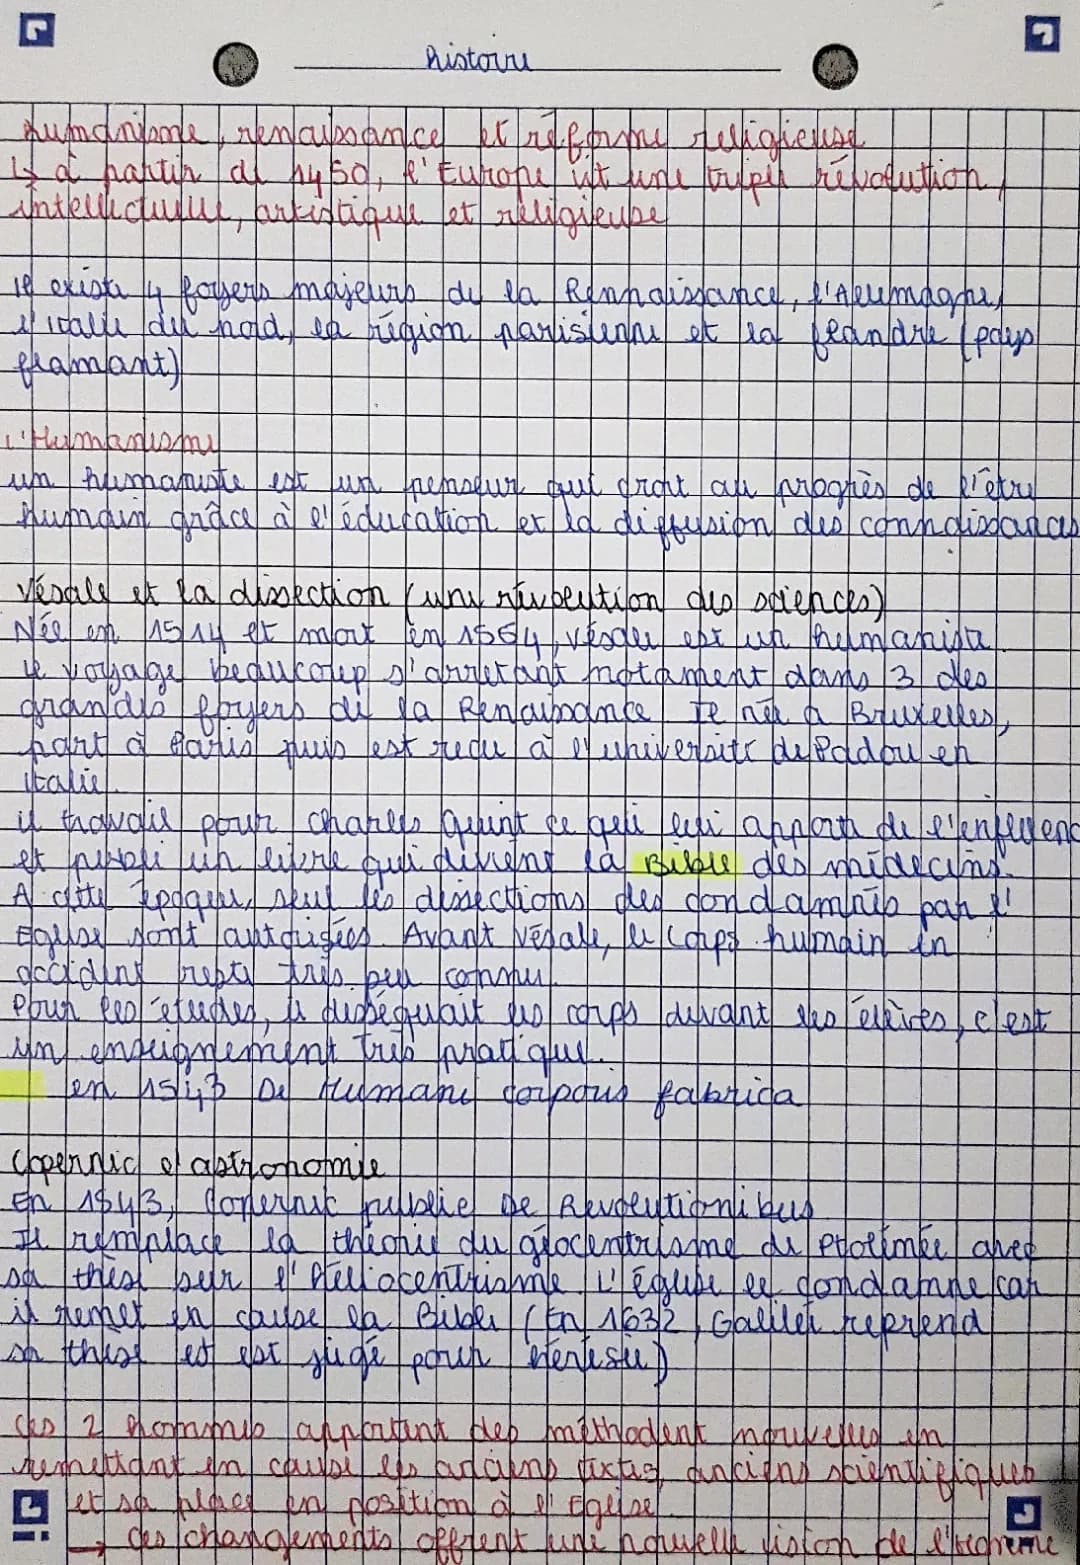 histoire
humanisme, renaissance et réforme religieuse
↳ à partir de 1450, l'Europe vit une triple révolution,
intellectuelle, artistique et religieuse
il existe 4 foyers majeurs de la Rennaissance, l'Allemagne,
l'italie du nord, la région parisienne et la flandre (pays
flamant)
l'Humanisme
un humaniste est un penseur qui croit au progrès de l'être
humain grâce à l'éducation et la diffusion des connaissances
Vésale et la dissection (une révolution des sciences)
Née en 1514 et mort en 1564, vésale est un humaniste
il voyage beaucoup s'arretant notament dans 3 des
grandes foyers de la Renaissance Il née à Bruxelles,
part à Paris puis est reçu à l'université de Padou en
italie.
il travail pour Charles Quint ce qui lui apporte de l'enfluence
et publie un livre qui devient la Bible des médecins.
A cette époque, seul les dissections des condamnés par l'
Eglise sont autorisées. Avant Vésale, le corps humain en
occident resta très peu connu.
Pour les études, il disséquait les corps devant les élèves, c'est
un enseignement très pratique.
en 1543 De Humani corporis fabrica
Copernic et astronomie
En 1543, Copernic publie De Revolutionibus
Il remplace la théorie du géocentrisme de Ptolémée avec
sa these sur l'Héliocentrisme. L'église le condamne car
il remet en cause la Bible (En 1632, Galilée reprend
sa these et est jugé pour hérésie)
Ces 2 hommes apportent des méthodent nouvelles en
remettant en cause les anciens textes, anciens scientifiques
et sa places en position à l'Eglise
→ ces changements offrent une nouvelle vision de l'homme